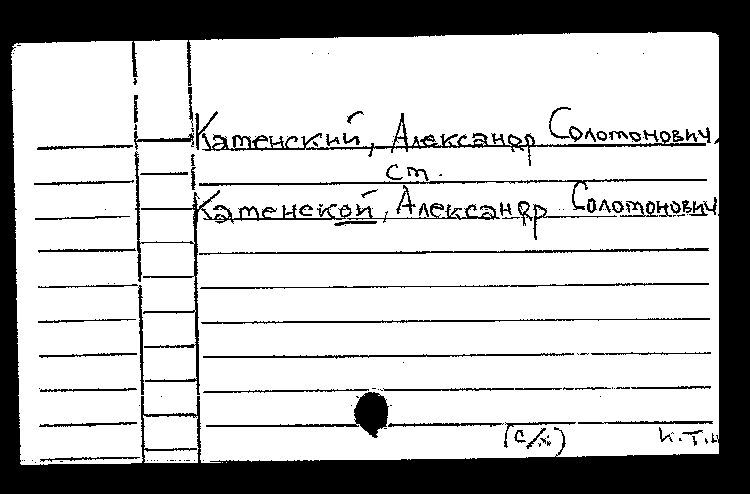 Каменский, Александр Соломонович,
ст.
Каменской, Александр Соломонович
(с/х) к.т.н